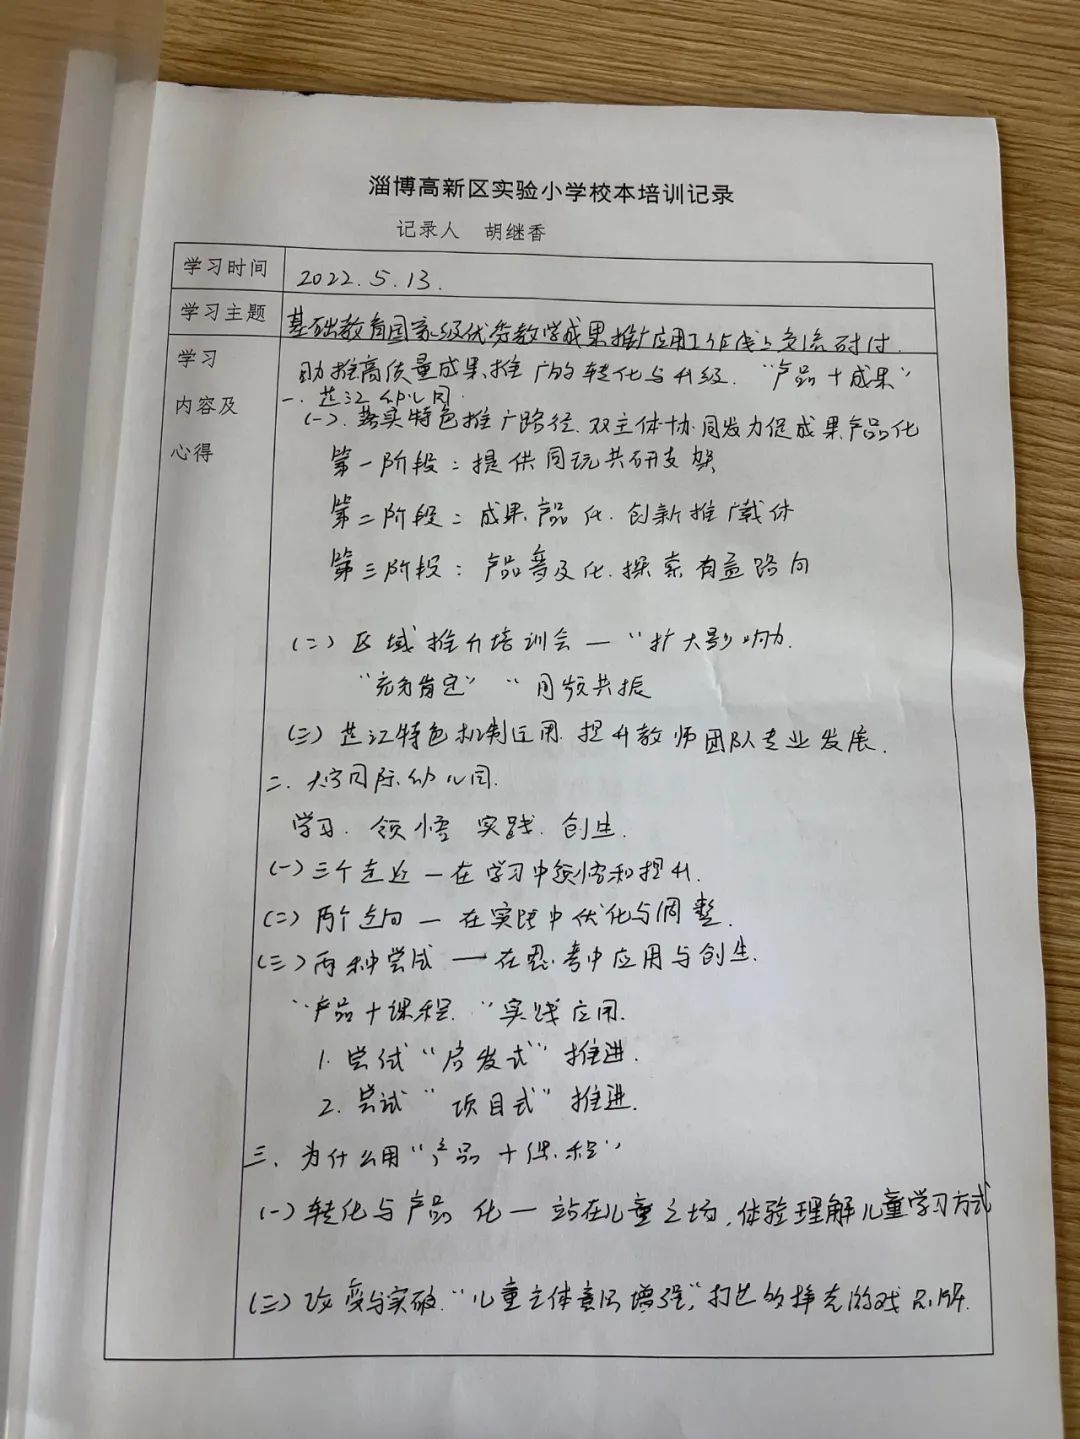 淄博高新区实验小学校本培训记录
记录人 胡继香
学习时间 2022.5.13.
学习主题 基础教育国家级优秀教学成果推广应用工作线上交流研讨.
学习
内容及
心得
助推高质量成果推广的转化与升级. “产品+成果”
一. 芷江幼儿园.
(一). 落实特色推广路径. 双主体协同发力促成果产品化
第一阶段: 提供同玩共研支架
第二阶段: 成果产品化. 创新推广载体
第三阶段: 产品普及化. 探索有益路向
(二) 区域推介培训会 — “扩大影响力.
“充分肯定” “同频共振
(三) 芷江特色机制运用 提升教师团队专业发展.
二. 大宁国际幼儿园.
学习. 领悟 实践. 创生.
(一) 三个走近 — 在学习中领悟和提升.
(二) 两个走向 — 在实践中优化与调整.
(三) 两种尝试 — 在思考中应用与创生.
“产品+课程. “实践应用.
1. 尝试“启发式”推进.
2. 尝试“项目式”推进.
三. 为什么用“产品+课程”
(一) 转化与产品化 — 站在儿童立场, 体验理解儿童学习方式
(二) 改变与突破. “儿童主体意识增强,”